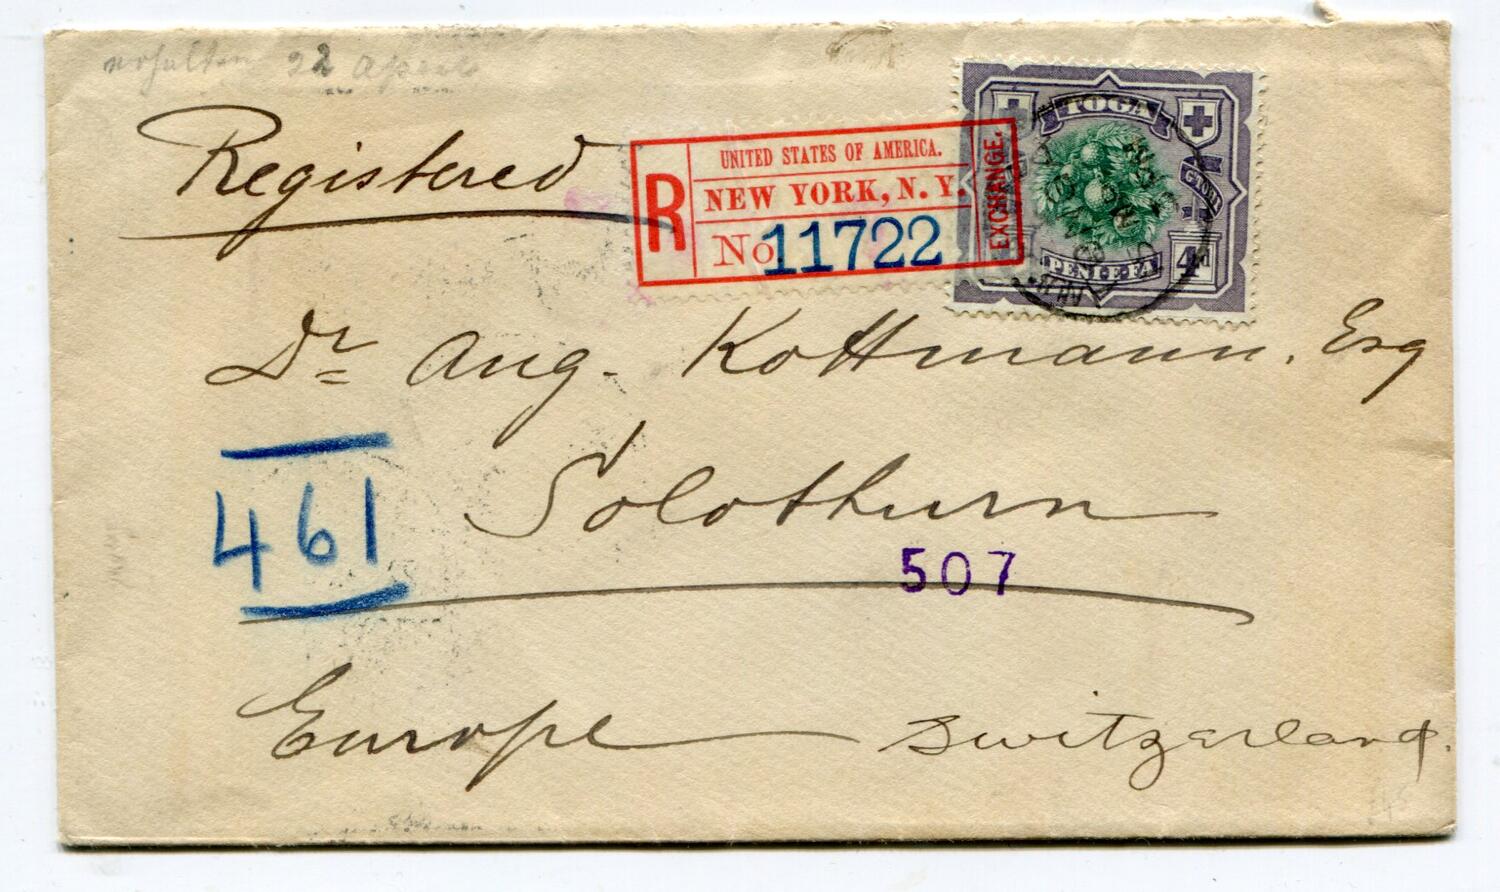 erhalten 22 April
Registered
R
UNITED STATES OF AMERICA.
NEW YORK, N. Y.
No 11722
EXCHANGE.
TOGA
G·TOBU
PENI·E·FA
4d
Dr Aug. Kottmann. Esq
461
Solothurn
507
Europe Switzerland.